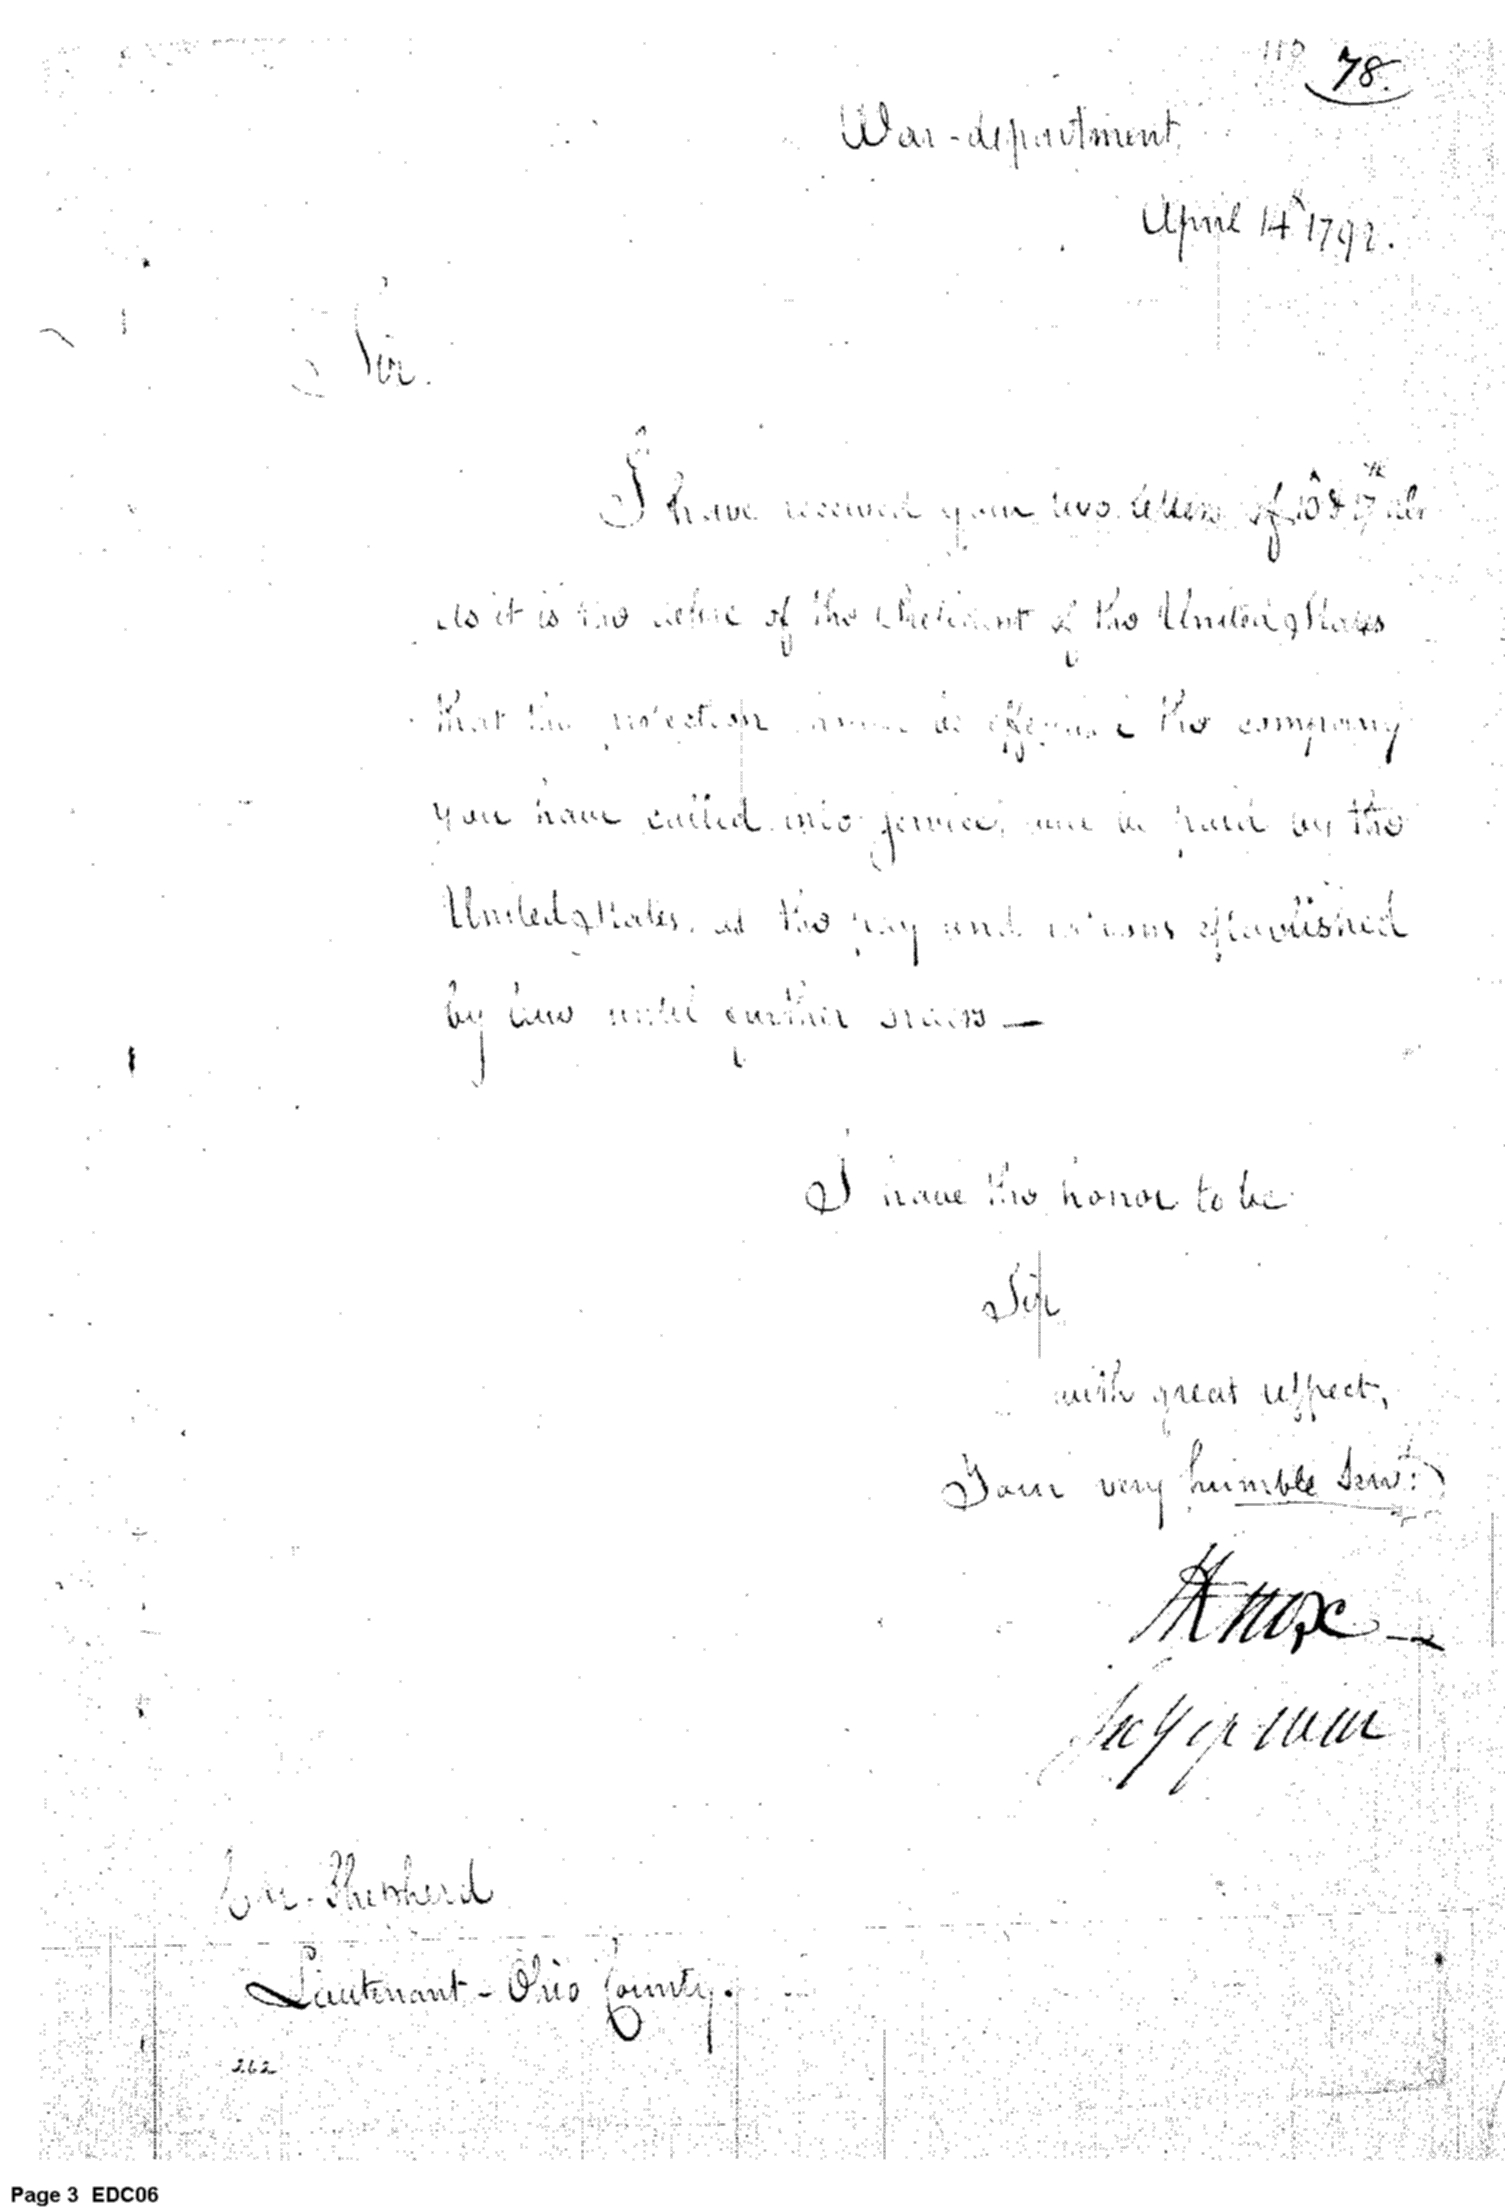 110 78.
War-department,
April 14th 1792.
Sir.
I have received your two letters of 10 & 17th ulto
As it is the desire of the President of the United States
that the protection should be effectual the company
you have called into service, will be paid by the
United States, at the pay and rations established
by law until further orders —
I have the honor to be
Sir
with great respect,
Your very humble Servt.
H Knox
Secy of War
Shepherd
Lieutenant - Ohio County.
262
Page 3 EDC06